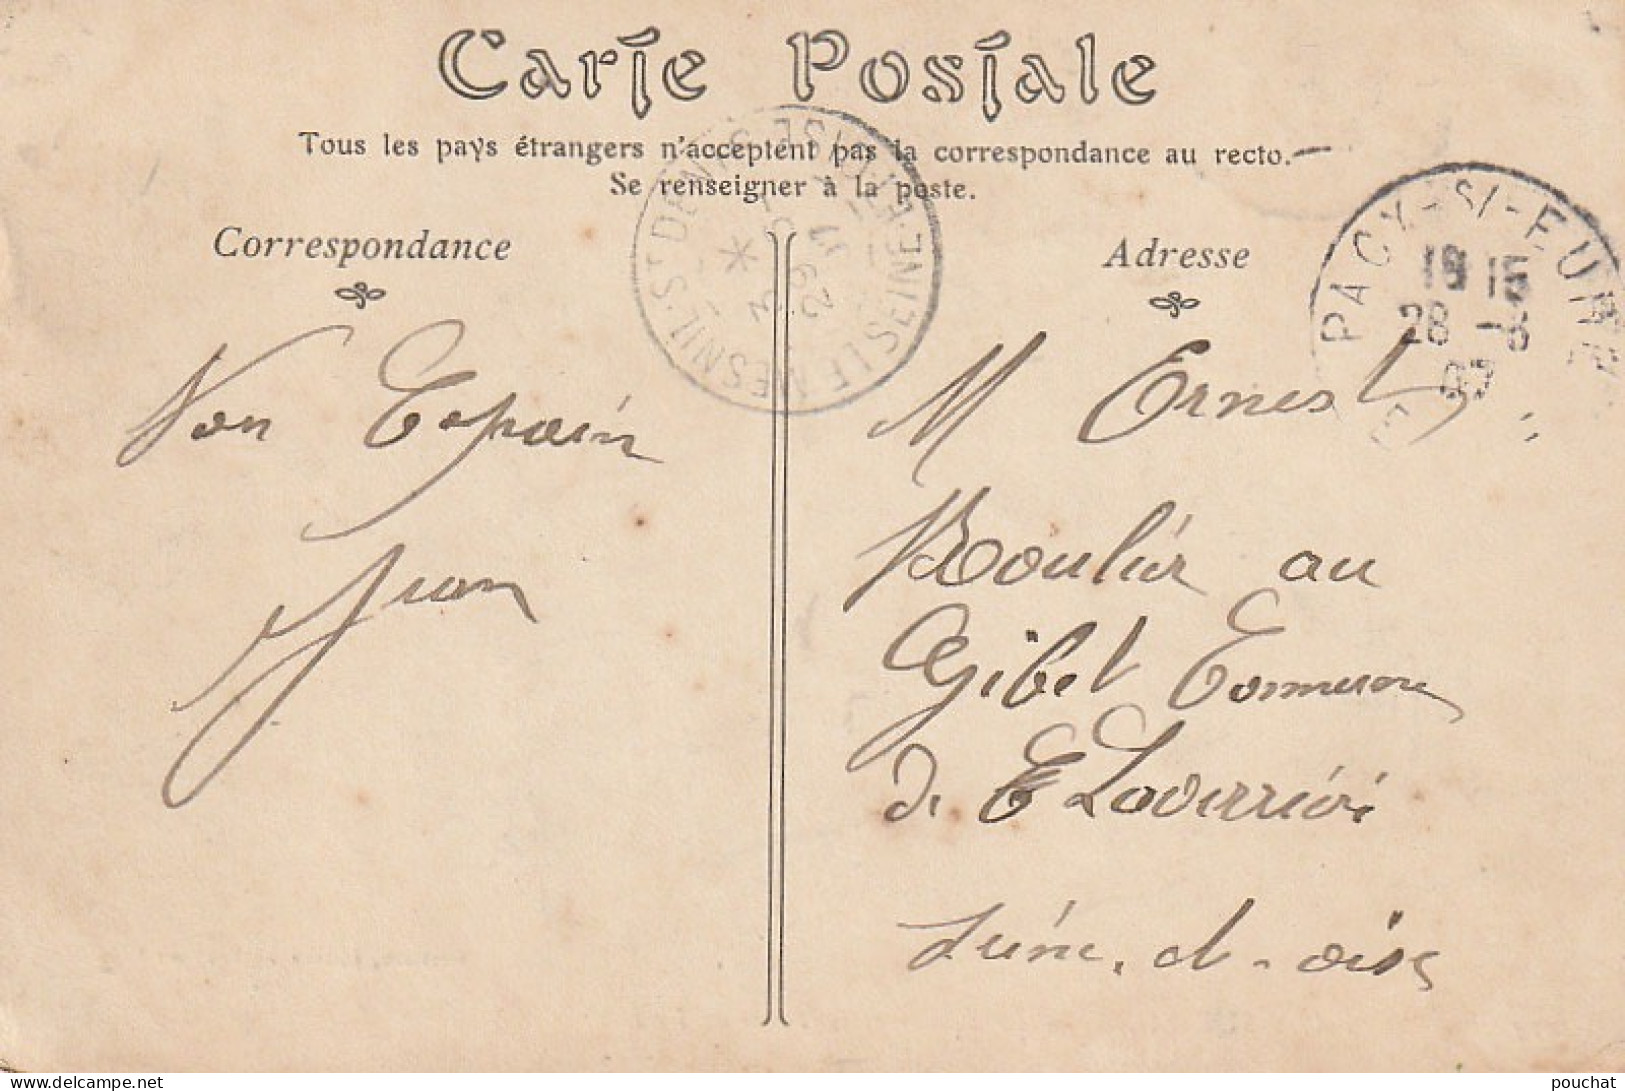 Carte Postale
Tous les pays étrangers n'acceptent pas la correspondance au recto.
Se renseigner à la poste.
Correspondance
Adresse
LE MESNIL-ST DENIS SEINE-ET-OISE
PACY-S/-EURE
28 -8
Ton Copain
Jean
M Ernest
Moulin au
Gibet Commune
de Laverrière
Seine-et-oise
www.delcampe.net
pouchat